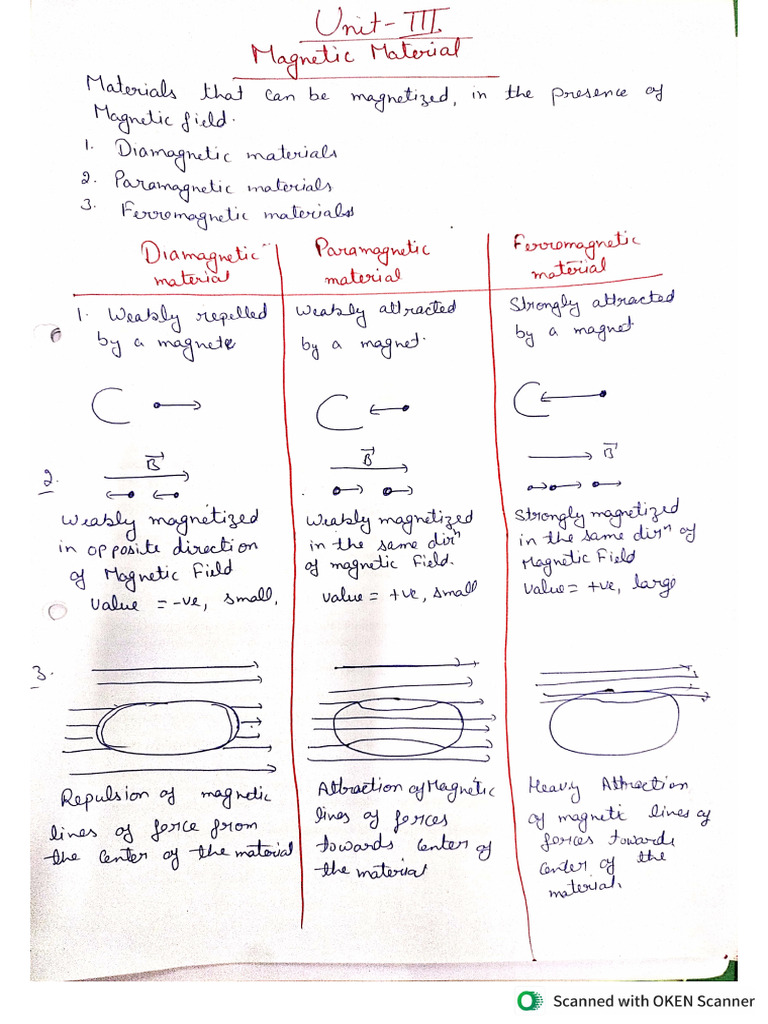 Unit-III
Magnetic Material
Materials that can be magnetized, in the presence of
Magnetic field.
1. Diamagnetic materials
2. Paramagnetic materials
3. Ferromagnetic materials
Diamagnetic
material
Paramagnetic
material
Ferromagnetic
material
1. Weakly repelled
by a magnete
Weakly attracted
by a magnet.
Strongly attracted
by a magnet.
2.
B
Weakly magnetized
in opposite direction
of Magnetic Field
Value = -ve, small.
B
Weakly magnetized
in the same dirⁿ
of magnetic Field.
Value = +ve, small
B
Strongly magnetized
in the same dirⁿ of
Magnetic Field
Value = +ve, large
3.
Repulsion of magnetic
lines of force from
the center of the material
Attraction of Magnetic
lines of forces
towards center of
the material
Heavy Attraction
of magneti lines of
forces towards
center of the
material.
Scanned with OKEN Scanner